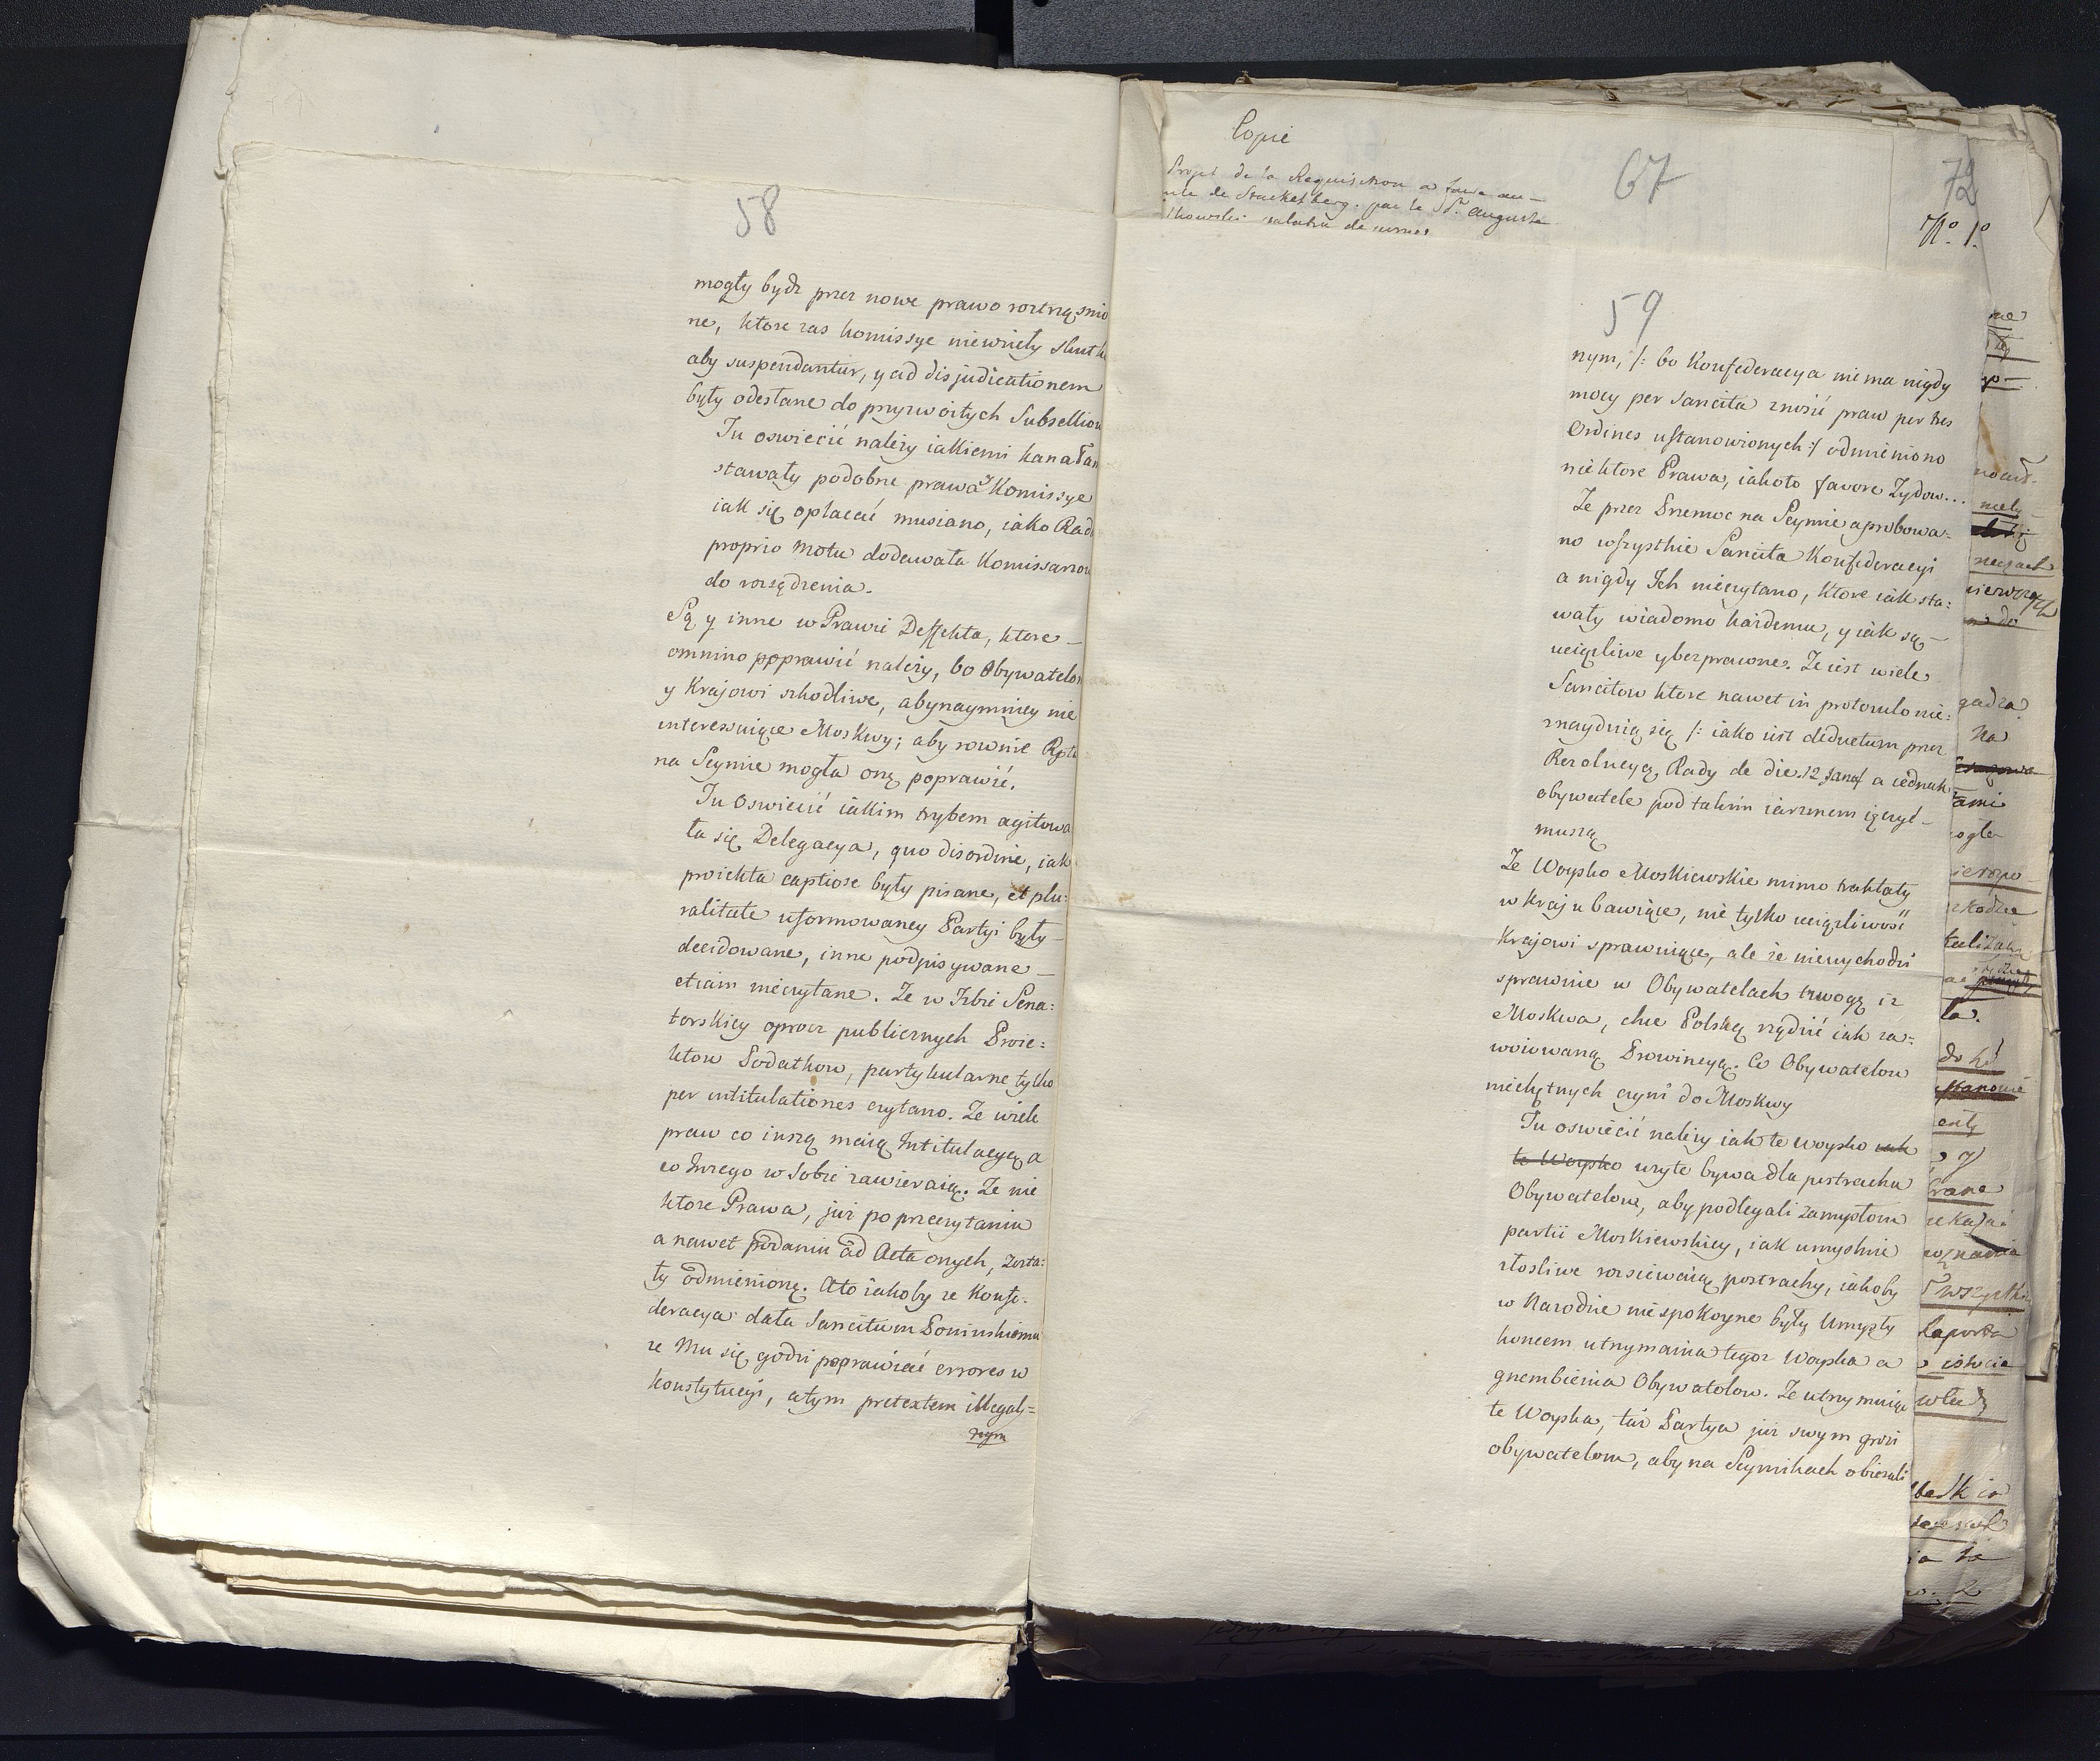 58
mogły bydz przez nowe prawo roztrząsnio
ne, ktore zas komissye niewzieły skutk
aby suspendantur, y ad disjudicationem
były odesłane do przyzwoitych Subsellion
Tu oswiecić należy iakiemi kanałam
stawały podobne prawa y Komissye
iak się opłacać musiano, iako Rada
proprio Motu dodawała Komissarzow
do rozsądzenia.
Są y inne w Prawie Deffekta, ktore —
omnino poprawić należy, bo Obywatelom
y Krajowi szkodliwe, abynaymniey nie
interessuiące Moskwy; aby rownie Rpta
na Seymie mogła onę poprawić.
Tu Oswiecić iakim trybem agitowa
ła się Delegacya, quo disordine, iak
proiekta captiose były pisane, et plu:
ralitate uformowaney Partyi były —
decidowane, inne podpisywane —
etiam nieczytane. Ze w Izbie Sena:
torskiey oprocz publicznych Proie:
ktow Podatkow, partykularne tylko
per intitulationes czytano. Ze wiele
praw co inszą maią Intitulacyą a
co inrego w Sobie zawieraią. Ze nie
ktore Prawa, już po przeczytaniu
a nawet podaniu ad Acta onych, zosta:
ły odmienione. Ato iakoby ze Konfe:
deracya dała Sancitum Poninskiemu
ze Mu się godzi poprawiać errores w
konstytucyi, atym pretextem illegal=
nym
Copie
Projet de la Requisition a faire au —
de Stackelberg. par le Sr. Auguste
67
72
No. 1o
59
nym, /: bo Konfederacya nie ma nigdy
mocy per Sancita znosić praw per tres
Ordines ustanowionych :/ odmieniono
niektore Prawa, iakoto favore Zydow...
Ze przez Przemoc na Seymie aprobowa:
no wszystkie Sancita Konfederacyi
a nigdy Ich nieczytano, ktore iak sta:
wały wiadomo każdemu, y iak są —
uciążliwe y bezprawne. Ze iest wiele
Sancitow ktore nawet in protocolo nie:
znaydują się /: iako iest deductum przez
Rezolucyą Rady de die. 12 Jana/ a iednak
obywatele pod takim iarzmem ięczyć —
muszą
Ze Woysko Moskiewskie mimo traktaty
w kraju bawiące, nie tylko uciążliwość
Krajowi sprawuiące, ale że niewychodzi
sprawuie w Obywatelach trwogę iz
Moskwa, chce Polskę rządzić iak za:
woiowaną Prowincyą. Co Obywatelow
niechętnych czyni do Moskwy
Tu oswiecić należy iak te woysko iak
te Woysko uzyte bywa dla postrachu
Obywatelow, aby podlegali zamysłom
partii Moskiewskiey, iak umyslnie
złosliwe rozsiewaią postrachy, iakoby
w Narodzie niespokoyne były Umysły
koncem utrzymania tegoz Woyska a
gnembienia Obywatelow. Ze utrzymuiąc
te Woyska, taż Partya już swym grozi
obywatelom, aby na Seymikach obierali